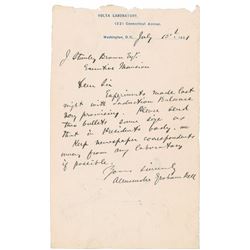 VOLTA LABORATORY,
1221 Connecticut Avenue.
Washington, D.C., July 15th, 1881
J Stanley Brown Esq.
Executive Mansion
Dear Sir
Experiments made last
night with Induction Balance
very promising. Please send
two bullets same size as
that in Presidents body, and
keep newspaper correspondents
away from my laboratory
if possible.
Yours sincerely
Alexander Graham Bell